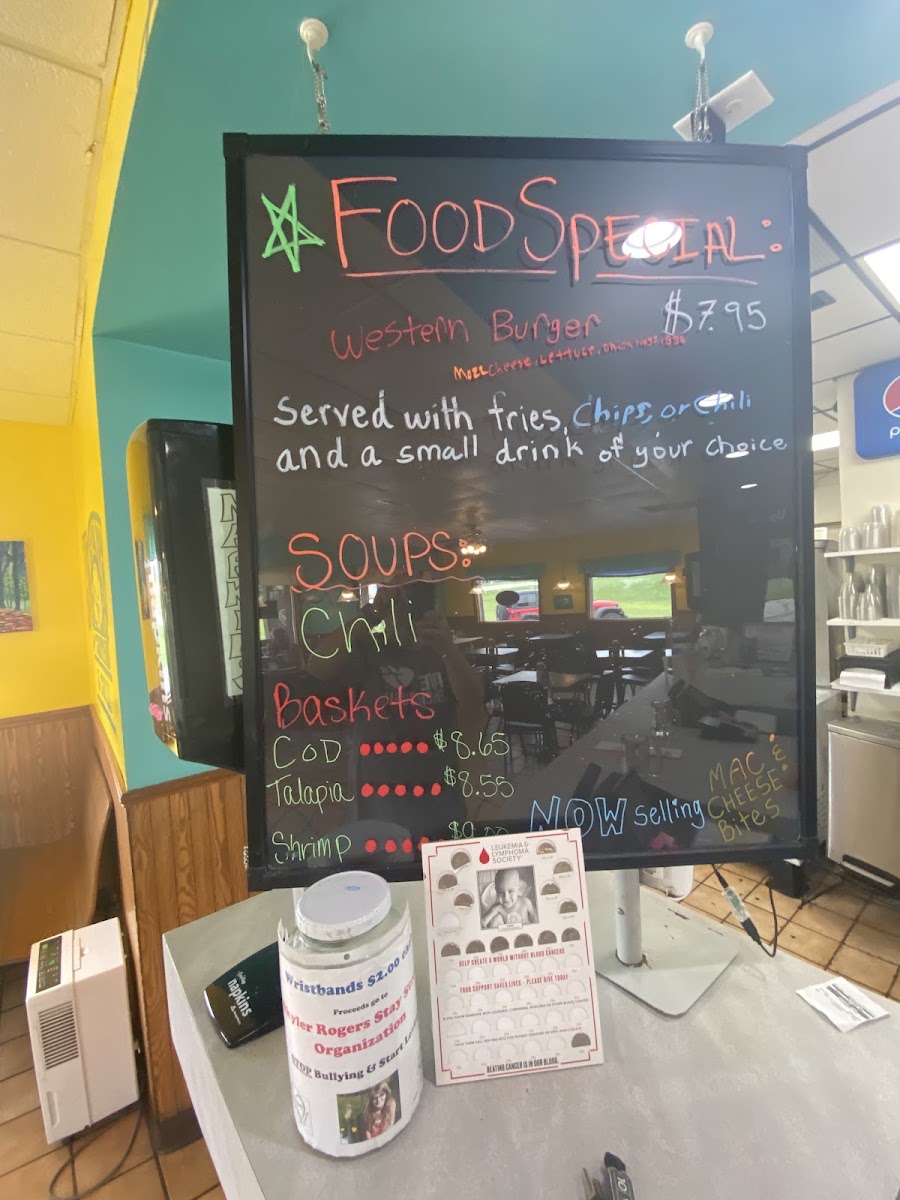 FOOD SPECIAL:
Western Burger $7.95
Mozz Cheese, Lettuce, Onion
Served with fries, Chips, or Chili
and a small drink of your choice
SOUPS:
Chili
Baskets
COD $8.65
Talapia $8.55
Shrimp
NOW selling MAC & CHEESE Bites
LEUKEMIA &
LYMPHOMA
SOCIETY
HELP CREATE A WORLD WITHOUT BLOOD CANCERS
YOUR SUPPORT SAVES LIVES - PLEASE GIVE TODAY
BEATING CANCER IS IN OUR BLOOD.
napkins
Wristbands $2.00
Proceeds go to
Rogers Stay
Organization
STOP Bullying & Start